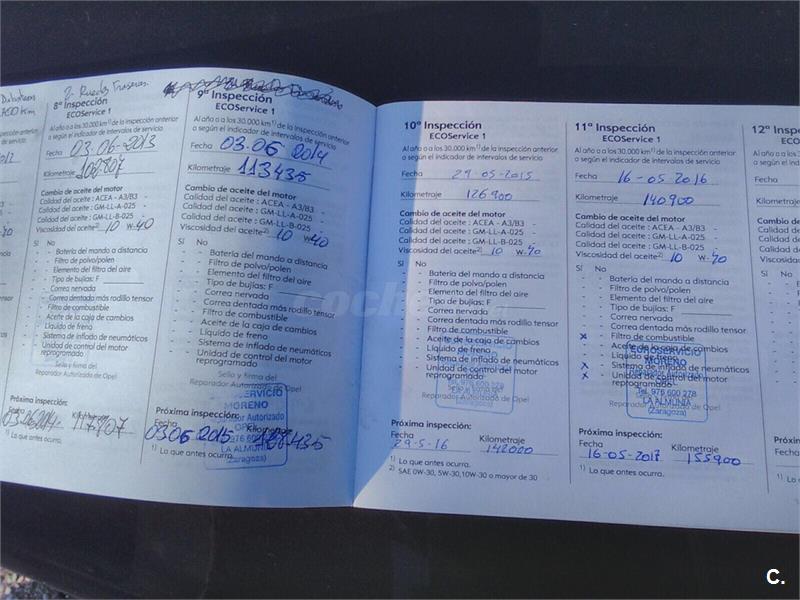 2 Ruedas Traseras.
8ª Inspección
ECOService 1
Al año o a los 30.000 km¹⁾ de la inspección anterior
o según el indicador de intervalos de servicio
Fecha 03.06-2013
Kilometraje
Cambio de aceite del motor
Calidad del aceite : ACEA - A3/B3 -
Calidad del aceite : GM-LL-A-025 -
Calidad del aceite : GM-LL-B-025 -
Viscosidad del aceite²⁾ 10 W-40
Sí No
- - Batería del mando a distancia
- - Filtro de polvo/polen
- - Elemento del filtro del aire
- - Tipo de bujías: F
- - Correa nervada
- - Correa dentada más rodillo tensor
- - Filtro de combustible
- - Aceite de la caja de cambios
- - Líquido de freno
- - Sistema de inflado de neumáticos
- - Unidad de control del motor
reprogramado
Sello y firma del
Reparador Autorizado de Opel
Próxima inspección:
Fecha
03.06.2014
Kilometraje
117.807
¹⁾ Lo que antes ocurra.
9ª Inspección
ECOService 1
Al año o a los 30.000 km¹⁾ de la inspección anterior
o según el indicador de intervalos de servicio
Fecha 03.06 2014
Kilometraje 113435
Cambio de aceite del motor
Calidad del aceite : ACEA - A3/B3 -
Calidad del aceite : GM-LL-A-025 -
Calidad del aceite : GM-LL-B-025 -
Viscosidad del aceite²⁾ 10 W-40
Sí No
- - Batería del mando a distancia
- - Filtro de polvo/polen
- - Elemento del filtro del aire
- - Tipo de bujías: F
- - Correa nervada
- - Correa dentada más rodillo tensor
- - Filtro de combustible
- - Aceite de la caja de cambios
- - Líquido de freno
- - Sistema de inflado de neumáticos
- - Unidad de control del motor
reprogramado
Sello y firma del
Reparador Autorizado de Opel
MORENO
Reparador Autorizado
OPEL
LA ALMUNIA
(Zaragoza)
Próxima inspección:
Fecha
03.06.2015
Kilometraje
¹⁾ Lo que antes ocurra.
10ª Inspección
ECOService 1
Al año o a los 30.000 km¹⁾ de la inspección anterior
o según el indicador de intervalos de servicio
Fecha 29-05-2015
Kilometraje 126900
Cambio de aceite del motor
Calidad del aceite : ACEA - A3/B3 -
Calidad del aceite : GM-LL-A-025 -
Calidad del aceite : GM-LL-B-025 -
Viscosidad del aceite²⁾ 10 W-40
Sí No
- - Batería del mando a distancia
- - Filtro de polvo/polen
- - Elemento del filtro del aire
- - Tipo de bujías: F
- - Correa nervada
- - Correa dentada más rodillo tensor
- - Filtro de combustible
- - Aceite de la caja de cambios
- - Líquido de freno
- - Sistema de inflado de neumáticos
- - Unidad de control del motor
reprogramado
Sello y firma del
Reparador Autorizado de Opel
Tel. 976 600 278
(Zaragoza)
Próxima inspección:
Fecha
29-5-16
Kilometraje
142000
¹⁾ Lo que antes ocurra.
²⁾ SAE 0W-30, 5W-30,10W-30 o mayor de 30
11ª Inspección
ECOService 1
Al año o a los 30.000 km¹⁾ de la inspección anterior
o según el indicador de intervalos de servicio
Fecha 16-05-2016
Kilometraje 140900
Cambio de aceite del motor
Calidad del aceite : ACEA - A3/B3 -
Calidad del aceite : GM-LL-A-025 -
Calidad del aceite : GM-LL-B-025 -
Viscosidad del aceite²⁾ 10 W-40
Sí No
- - Batería del mando a distancia
- - Filtro de polvo/polen
- - Elemento del filtro del aire
- - Tipo de bujías: F
- - Correa nervada
- - Correa dentada más rodillo tensor
x - Filtro de combustible
- - Aceite de la caja de cambios
- - Líquido de freno
x - Sistema de inflado de neumáticos
x - Unidad de control del motor
reprogramado
EUROSERVICIO
MORENO
Reparador Autorizado
OPEL
Tel. 976 600 278
LA ALMUNIA
(Zaragoza)
Reparador Autorizado de Opel
Próxima inspección:
Fecha
16-05-2017
Kilometraje
155900
¹⁾ Lo que antes ocurra.
12ª Inspección
Fecha
C.